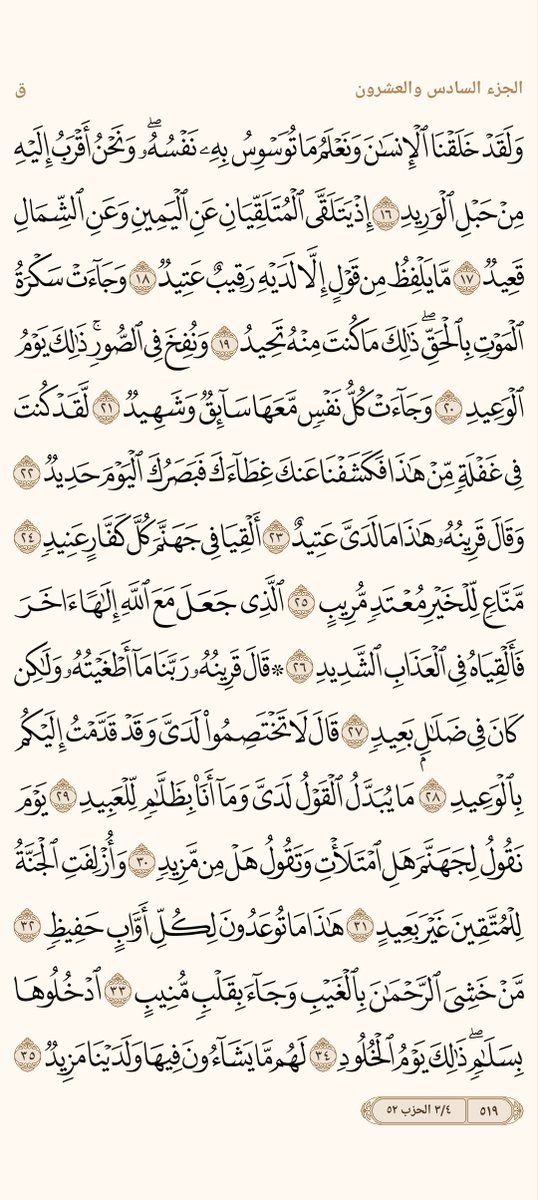 الجزء السادس والعشرون
ق
وَلَقَدۡ خَلَقۡنَا ٱلۡإِنسَٰنَ وَنَعۡلَمُ مَا تُوَسۡوِسُ بِهِۦ نَفۡسُهُۥۖ وَنَحۡنُ أَقۡرَبُ إِلَيۡهِ
مِنۡ حَبۡلِ ٱلۡوَرِيدِ ١٦ إِذۡ يَتَلَقَّى ٱلۡمُتَلَقِّيَانِ عَنِ ٱلۡيَمِينِ وَعَنِ ٱلشِّمَالِ
قَعِيدٞ ١٧ مَّا يَلۡفِظُ مِن قَوۡلٍ إِلَّا لَدَيۡهِ رَقِيبٌ عَتِيدٞ ١٨ وَجَآءَتۡ سَكۡرَةُ
ٱلۡمَوۡتِ بِٱلۡحَقِّۖ ذَٰلِكَ مَا كُنتَ مِنۡهُ تَحِيدُ ١٩ وَنُفِخَ فِي ٱلصُّورِۚ ذَٰلِكَ يَوۡمُ
ٱلۡوَعِيدِ ٢٠ وَجَآءَتۡ كُلُّ نَفۡسٖ مَّعَهَا سَآئِقٞ وَشَهِيدٞ ٢١ لَّقَدۡ كُنتَ
فِي غَفۡلَةٖ مِّنۡ هَٰذَا فَكَشَفۡنَا عَنكَ غِطَآءَكَ فَبَصَرُكَ ٱلۡيَوۡمَ حَدِيدٞ ٢٢
وَقَالَ قَرِينُهُۥ هَٰذَا مَا لَدَيَّ عَتِيدٌ ٢٣ أَلۡقِيَا فِي جَهَنَّمَ كُلَّ كَفَّارٍ عَنِيدٖ ٢٤
مَّنَّاعٖ لِّلۡخَيۡرِ مُعۡتَدٖ مُّرِيبٍ ٢٥ ٱلَّذِي جَعَلَ مَعَ ٱللَّهِ إِلَٰهًا ءَاخَرَ
فَأَلۡقِيَاهُ فِي ٱلۡعَذَابِ ٱلشَّدِيدِ ٢٦ * قَالَ قَرِينُهُۥ رَبَّنَا مَآ أَطۡغَيۡتُهُۥ وَلَٰكِن
كَانَ فِي ضَلَٰلِۭ بَعِيدٖ ٢٧ قَالَ لَا تَخۡتَصِمُواْ لَدَيَّ وَقَدۡ قَدَّمۡتُ إِلَيۡكُم
بِٱلۡوَعِيدِ ٢٨ مَا يُبَدَّلُ ٱلۡقَوۡلُ لَدَيَّ وَمَآ أَنَا۠ بِظَلَّٰمٖ لِّلۡعَبِيدِ ٢٩ يَوۡمَ
نَقُولُ لِجَهَنَّمَ هَلِ ٱمۡتَلَأۡتِ وَتَقُولُ هَلۡ مِن مَّزِيدٖ ٣٠ وَأُزۡلِفَتِ ٱلۡجَنَّةُ
لِلۡمُتَّقِينَ غَيۡرَ بَعِيدٍ ٣١ هَٰذَا مَا تُوعَدُونَ لِكُلِّ أَوَّابٍ حَفِيظٖ ٣٢
مَّنۡ خَشِيَ ٱلرَّحۡمَٰنَ بِٱلۡغَيۡبِ وَجَآءَ بِقَلۡبٖ مُّنِيبٍ ٣٣ ٱدۡخُلُوهَا
بِسَلَٰمٖۖ ذَٰلِكَ يَوۡمُ ٱلۡخُلُودِ ٣٤ لَهُم مَّا يَشَآءُونَ فِيهَا وَلَدَيۡنَا مَزِيدٞ ٣٥
٥١٩
٣/٤ الحزب ٥٢